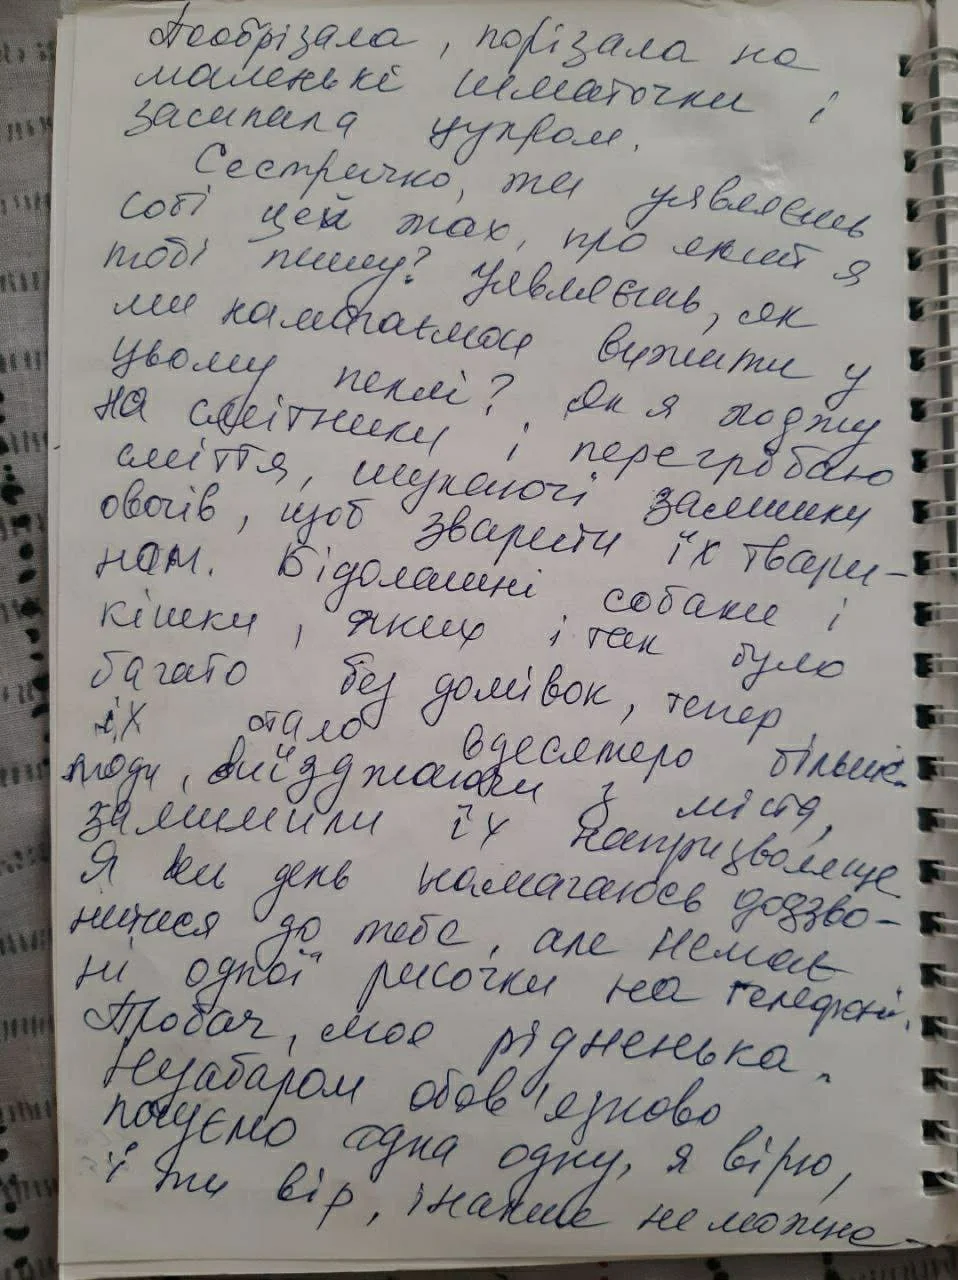 Пообрізала, порізала на
маленькі шматочки і
засипала цукром.
Сестричко, ти уявляєш
собі цей жах, про який я
тобі пишу? Уявляєш, як
ми намагаємося вижити у
цьому пеклі? Як я ходжу
на смітники і перегрібаю
сміття, шукаючі залишки
овочів, щоб зварити їх твари-
нам. Бідолашні собаки і
кішки, яких і так було
багато без домівок, тепер
їх стало вдесятеро більше.
Люди, виїзджаючи з міста,
залишили їх напризволяще
Я ж день намагаюсь додзво-
нитися до тебе, але немає
ні одної рисочки на телефоні.
Пробач, моя рідненька.
Незабаром обов'язково
почуємо одна одну, я вірю,
і ти вір, інакше не можна